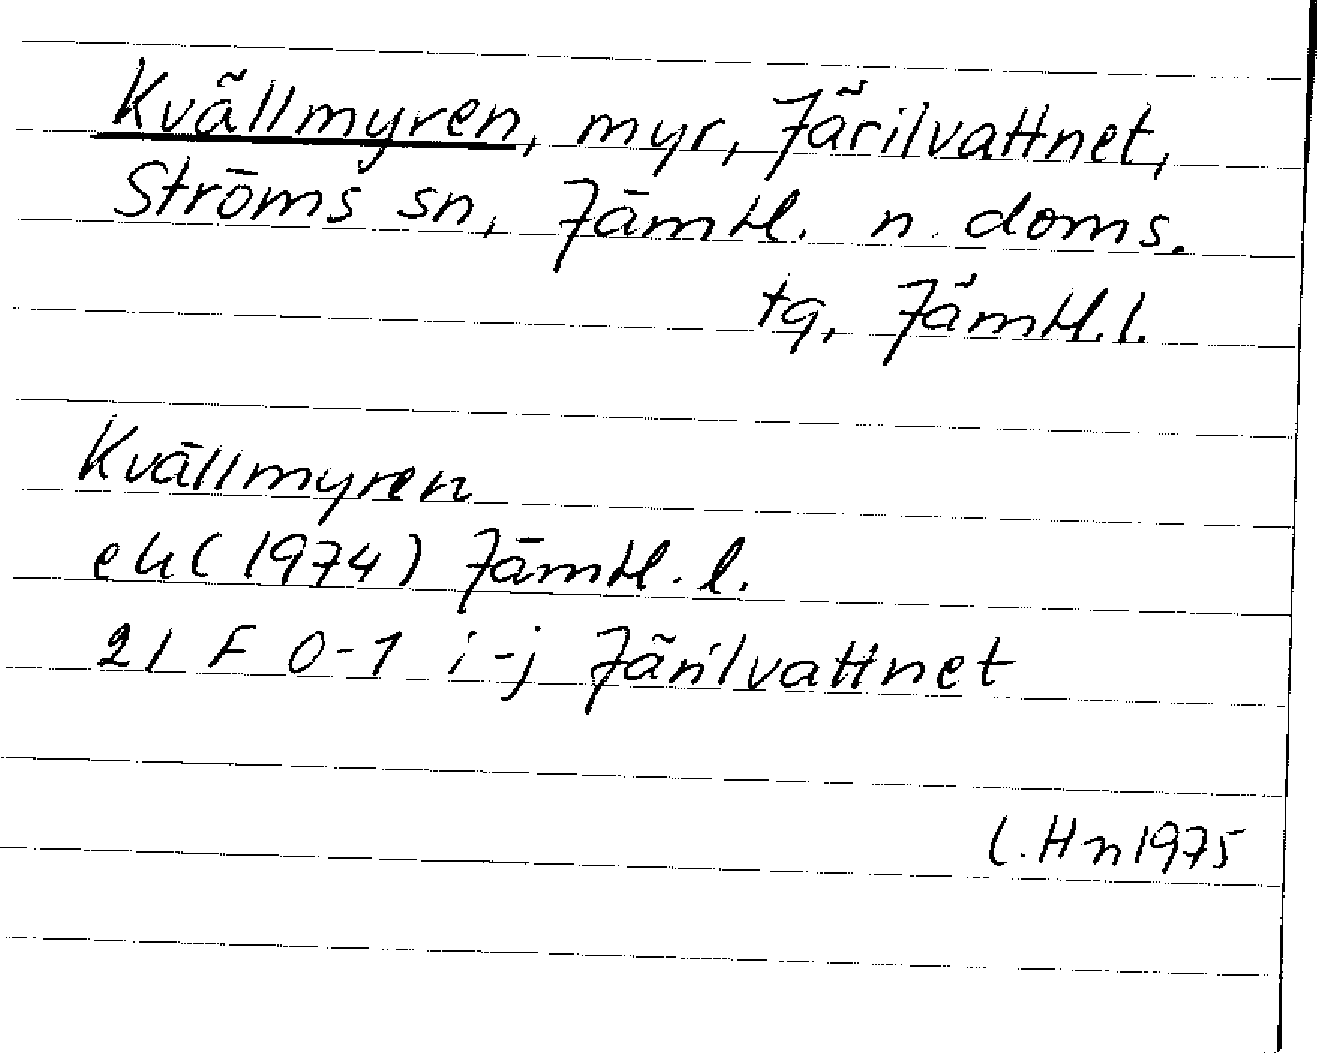 Kvällmyren, myr, Järilvattnet,
Ströms sn, Jämtl. n. doms.
tg, Jämtl. l.
Kvällmyren
ek (1974) Jämtl. l.
21 F 0-1 i-j Järilvattnet
l. Hn 1975